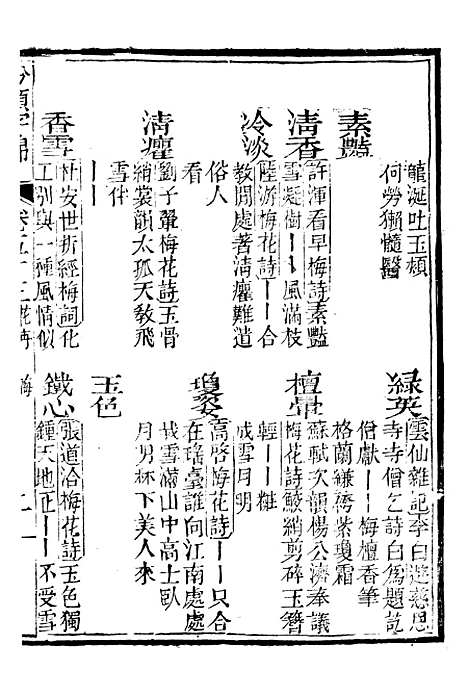 龍涎吐玉頰
何勞獺髓醫
綠英
雲仙雜記李白遊慈恩
寺寺僧乞詩白爲題訖
僧獻丨丨梅檀香筆
格蘭縑袴紫瓊霜
素豔
許渾看早梅詩素豔
清香
雪凝樹丨丨風滿枝
檀暈
蘇軾次韻楊公濟奉議
梅花詩鮫綃剪碎玉簪
輕丨丨粧
成雪月明
冷淡
陸游梅花詩丨丨合
教閒處著淸癯難遣
俗人
看
瓊姿
高啓梅花詩丨丨只合
在瑤臺誰向江南處處
栽雪滿山中高士臥
月明林下美人來
淸癯
劉子翬梅花詩玉骨
綃裳韻太孤天教飛
雪伴
丨丨
玉色
香雪
杜安世折紅梅詞化
工別與一種風情似
鐵心
張道洽梅花詩玉色獨
鍾天地正丨丨不受雪